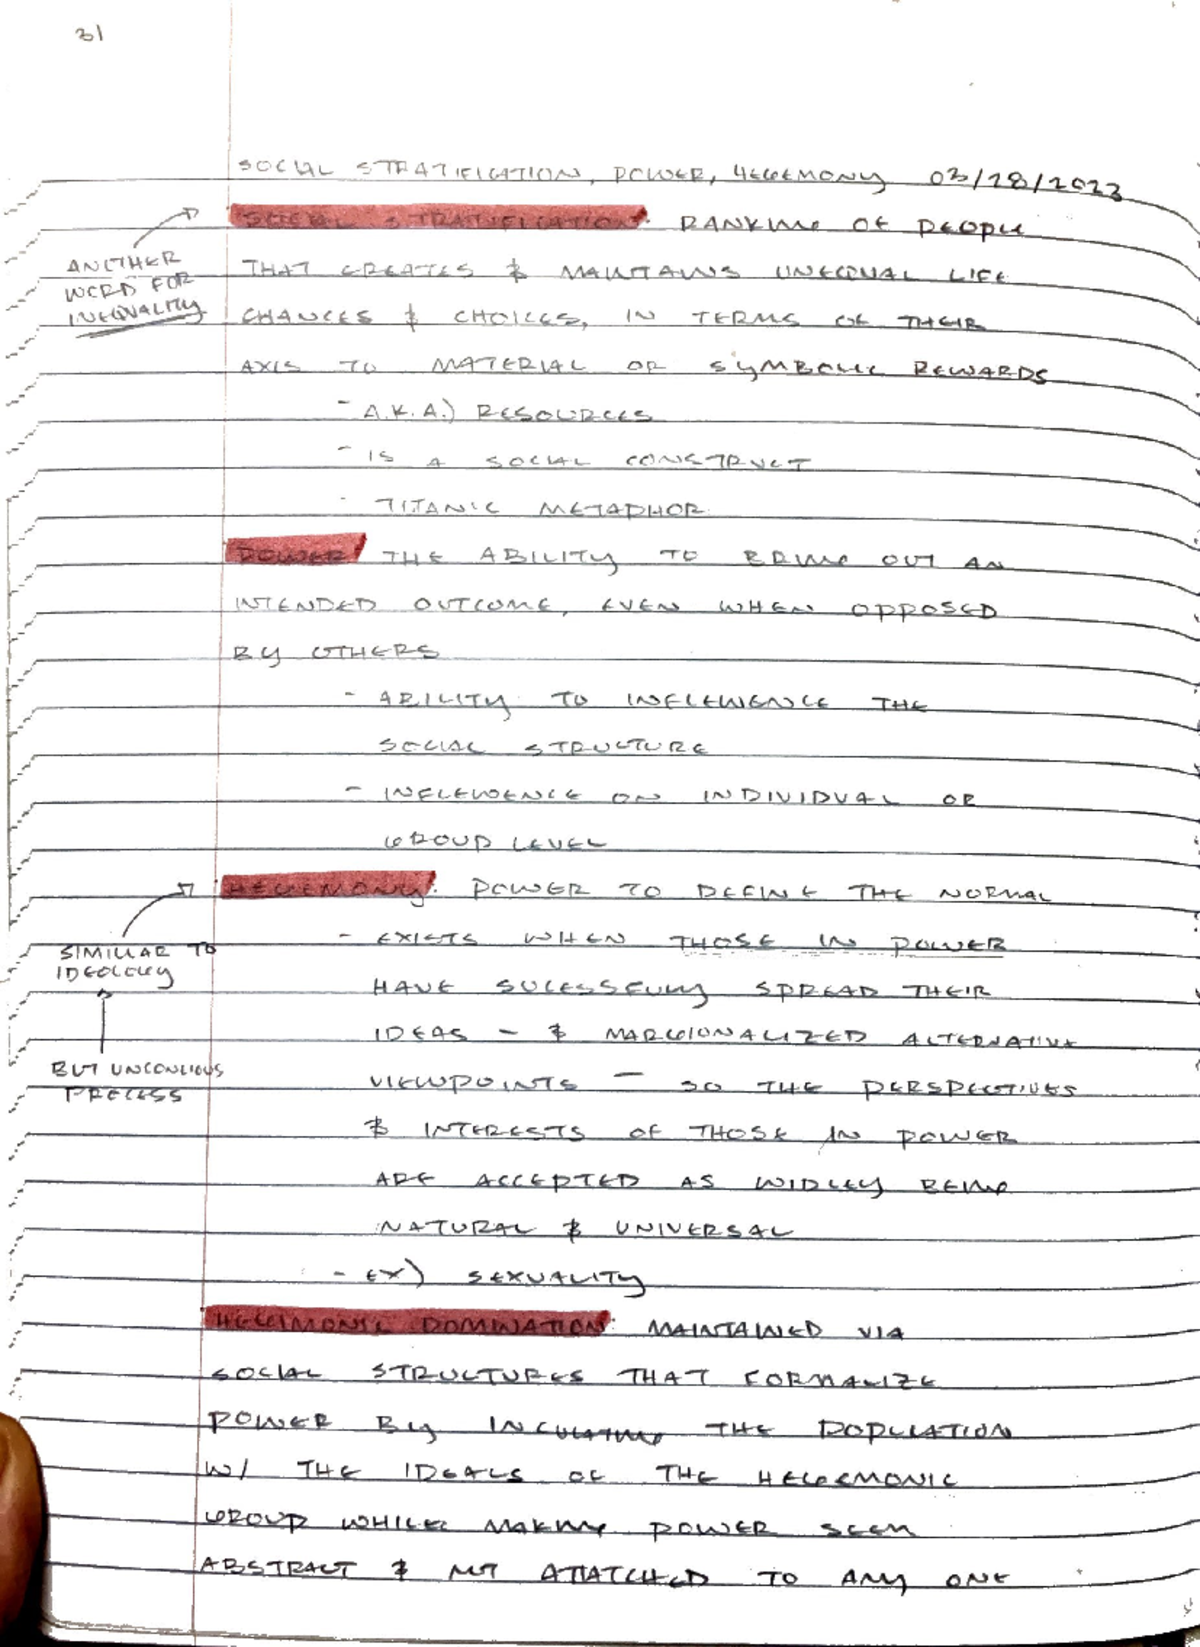 31
SOCIAL STRATIFICATION, POWER, HEGEMONY 03/28/2023
SOCIAL STRATIFICATION: RANKING OF PEOPLE
ANOTHER
WORD FOR
INEQUALITY
THAT CREATES & MAINTAINS UNEQUAL LIFE
CHANCES & CHOICES, IN TERMS OF THEIR
AXIS TO MATERIAL OR SYMBOLIC REWARDS
- A.K.A.) RESOURCES
- IS A SOCIAL CONSTRUCT
- TITANIC METAPHOR
POWER THE ABILITY TO BRING OUT AN
INTENDED OUTCOME, EVEN WHEN OPPOSED
BY OTHERS
- ABILITY TO INFLEWENCE THE
SOCIAL STRUCTURE
- INFLEWENCE ON INDIVIDUAL OR
GROUP LEVEL
HEGEMONY: POWER TO DEFINE THE NORMAL
SIMILLAR TO
IDEOLOGY
BUT UNCONCIOUS
PROCESS
- EXISTS WHEN THOSE IN POWER
HAVE SUCESSFULLY SPREAD THEIR
IDEAS - & MARGIONALIZED ALTERNATIVE
VIEWPOINTS - SO THE PERSPECTIVES
& INTERESTS OF THOSE IN POWER
ARE ACCEPTED AS WIDLEY BEING
NATURAL & UNIVERSAL
- EX) SEXUALITY
HEGEMONIC DOMINATION: MAINTAINED VIA
SOCIAL STRUCTURES THAT FORMALIZE
POWER BY INCULATING THE POPULATION
W/ THE IDEALS OF THE HEGEMONIC
GROUP WHILE MAKING POWER SEEM
ABSTRACT & NOT ATTATCHED TO ANY ONE